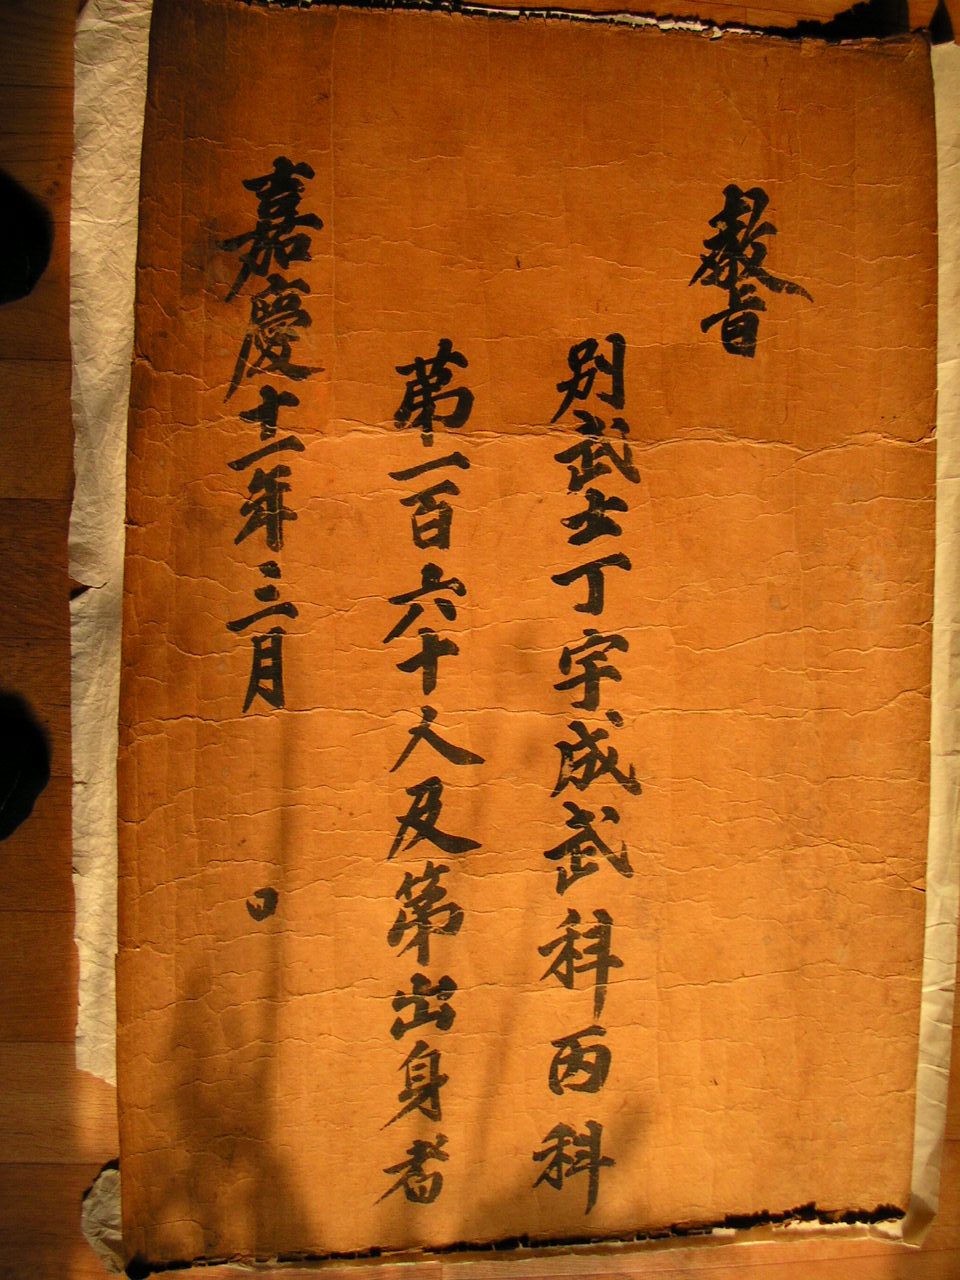 敎旨
別武士丁宇成武科丙科
第一百六十人及第出身者
嘉慶十一年三月 日